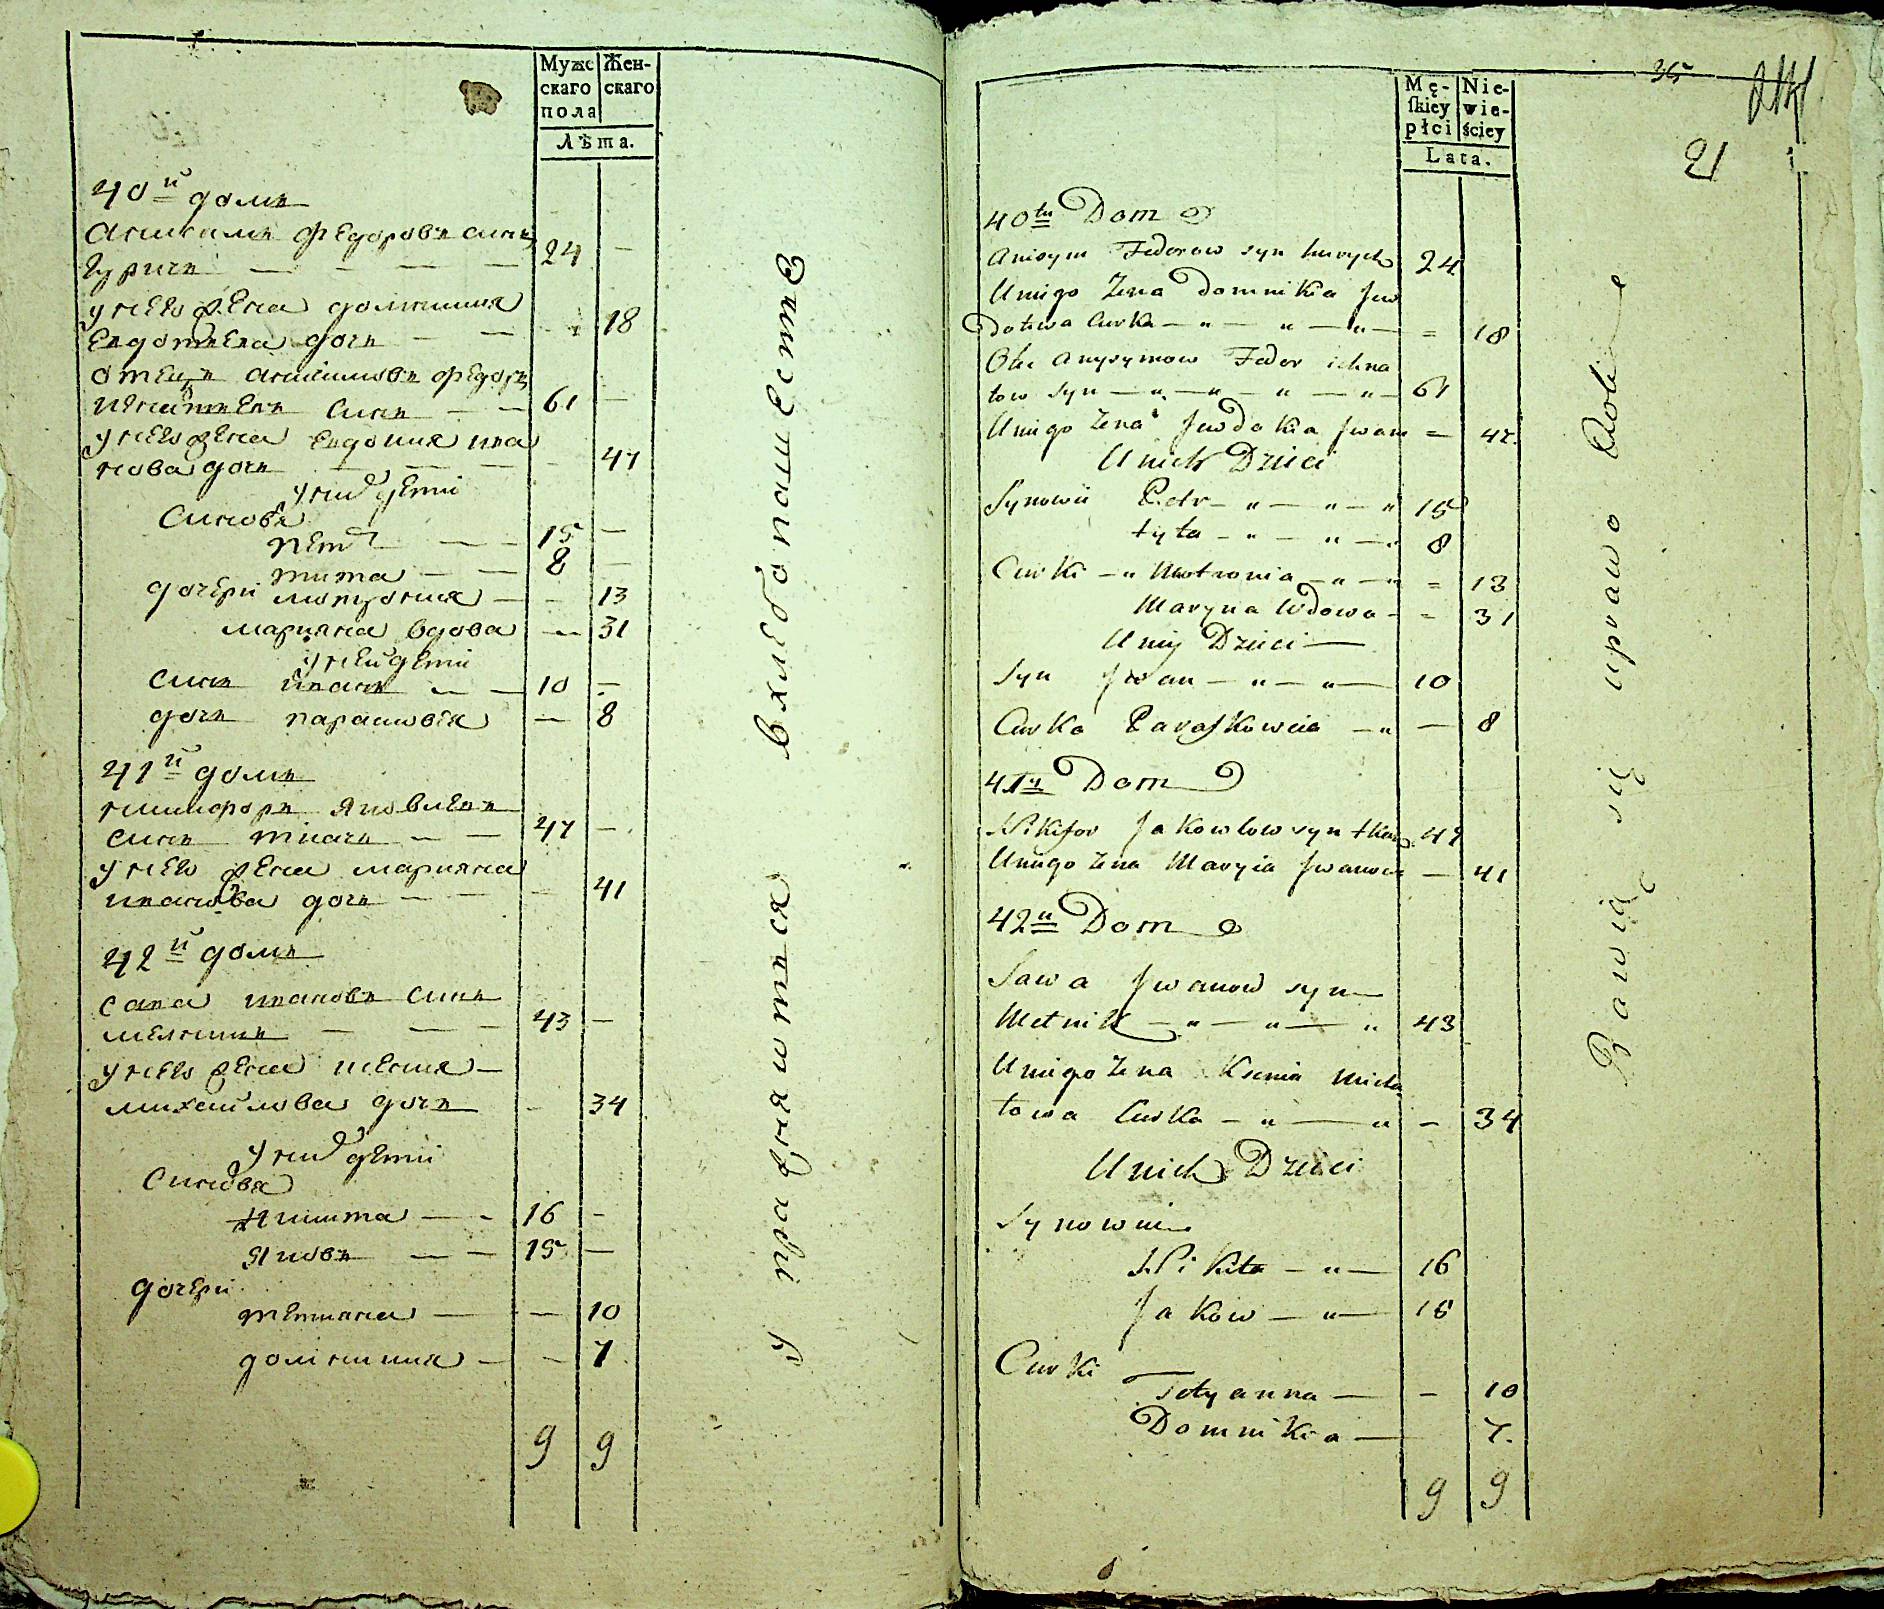 Муже
скаго
пола
Жен-
скаго
Лѣта.
40й домъ
Анисимъ Федоровъ синъ
Гуричъ — — — — 24 —
у него жена домникия
Евдотиева дочъ — — - 18
отецъ Анисимовъ Федоръ
Игнатиевъ синъ — — 61 —
у него жена Евдокия ива
нова дочъ — — — - 47
у них дети
Синовя
Петр — — 15 —
тита — — 8 —
дочери мотрония — - 13
марияна вдова — 31
у неи дети
Синъ иванъ — — 10 —
дочъ парасковія — 8
41й домъ
никифоръ Яковлевъ
синъ ткачъ — — 47 —
у него жена марияна
иванова дочъ — — - 41
42й домъ
сава ивановъ синъ
мелникъ — — — 43 —
у него жена ксения —
михаилова дочъ - 34
у них дети
Синовя
Никита — - 16 -
Яковъ — — 15 —
дочери
тетияна — — 10
домникия — — 7
9 9
Упражняются в хлебопашестве
35
21
Mę-
ſkiey
płci
Nie-
wie-
ściey
Lata.
40ty Dom
Anisym Fedorow syn hurycz 24
U niego Żena Domnikia Jew
dotewa Curka — „ — „ — „ — = 18
Otec Anysymow Fedor ichna
tow syn — „ — „ — „ — „ — 61
U niego Żena Jewdokia Jwan = 47.
U nich Dzieci
Synowii Petr — „ — „ — „ 15
tyta — „ — „ — 8
Curki — „ Motronia — „ — „ = 13
Maryna Wdowa - = 31
U niey Dzieci —
Syn Jwan — „ — „ — 10
Curka Paraſkowia — „ — 8
41ty Dom
Nikifor Jakowlow syn tkacz 47
U niego Żena Maryia Jwanow — 41
42ii Dom
Sawa Jwanow syn —
Melnik — „ — „ — „ 43
U niego Żena Ksenia Micha
łowa Curka — „ — „ — 34
U nich Dzieci
Synowie
Nikita — „ — 16
Jakow — „ — 15
Curki
Tetyanna — - 10
Domnikia — 7.
9 9
Bawią się uprawą Roli